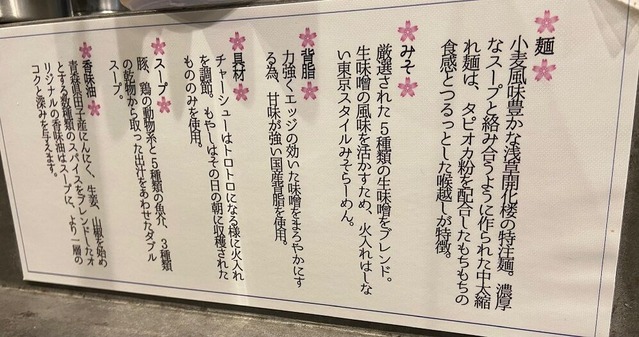 麺
小麦風味豊かな浅草開化楼の特注麺。濃厚
なスープと絡み合うように作られた中太縮
れ麺は、タピオカ粉を配合したもちもちの
食感とつるっとした喉越しが特徴。
みそ
厳選された5種類の生味噌をブレンド。
生味噌の風味を活かすため、火入れはしな
い東京スタイルみそらーめん。
背脂
力強くエッジの効いた味噌をまろやかにす
る為、甘味が強い国産背脂を使用。
具材
チャーシューはトロトロになる様に火入れ
を調節。もやしはその日の朝に収穫された
もののみを使用。
スープ
豚、鶏の動物系と5種類の魚介、3種類
の乾物から取った出汁をあわせたダブル
スープ。
香味油
青森県田子産にんにく、生姜、山椒を始め
とする数種類のスパイスをブレンドしたオ
リジナルの香味油はスープに、より一層の
コクと深みを与えます。